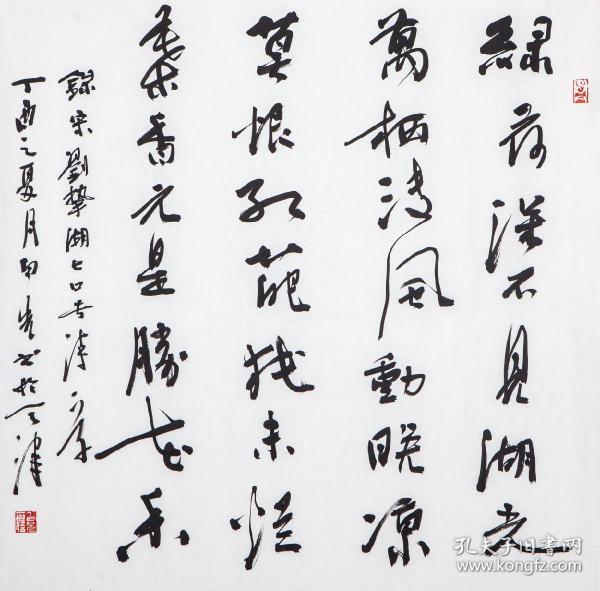 綠荷深不見湖光
萬柄清風動晚涼
莫恨紅葩猶未爛
葉香元是勝花香
錄宋劉摯湖上口号詩一首
丁酉之夏月書於天津
孔夫子旧书网
www.kongfz.com